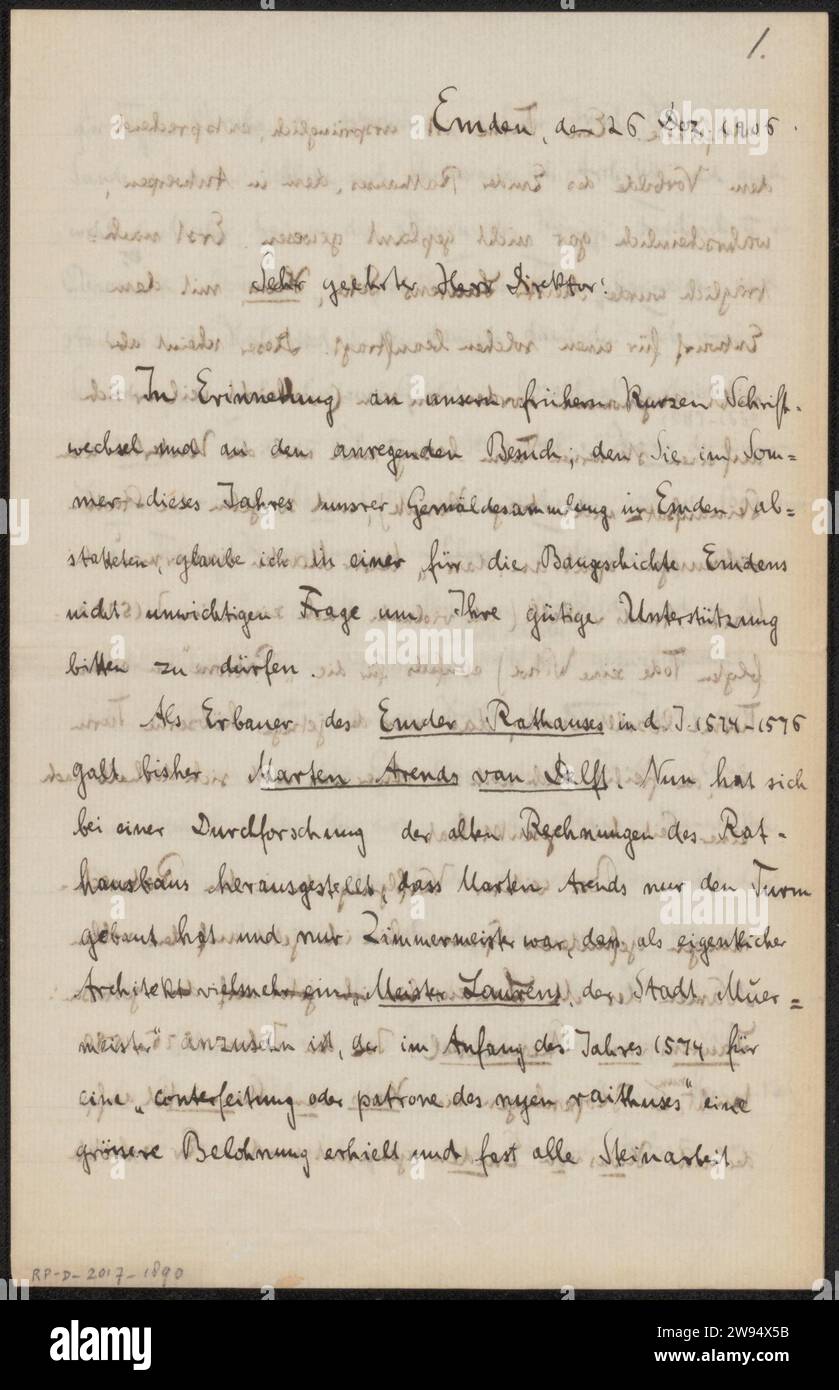 1.
Emden, den 26 Dez. 1906.
Sehr geehrter Herr Direktor!
In Erinnerung an unsern frühern kurzen Schrift-
wechsel und an den anregenden Besuch, den Sie im Som=
mer dieses Jahres unsrer Gemäldesammlung in Emden ab=
statteten, glaube ich in einer für die Baugeschichte Emdens
nicht unwichtigen Frage um Ihre gütige Unterstützung
bitten zu dürfen.
Als Erbauer des Emder Rathauses in d. J. 1574-1576
galt bisher Marten Arends van Delft. Nun hat sich
bei einer Durchforschung der alten Rechnungen des Rat-
hausbaus herausgestellt, dass Marten Arends nur den Turm
gebaut hat und nur Zimmermeister war, dass als eigentlicher
Architekt vielmehr ein Meister Laurens, der Stadt Muer=
meister" anzusehn ist, der im Anfang des Jahres 1574 für
eine „conterfeitung oder patrone des nyen raithuses" eine
grössere Belohnung erhielt und fast alle Steinarbeit
RP-D-2017-1890
alamy
Image ID: 2W94X5B
www.alamy.com